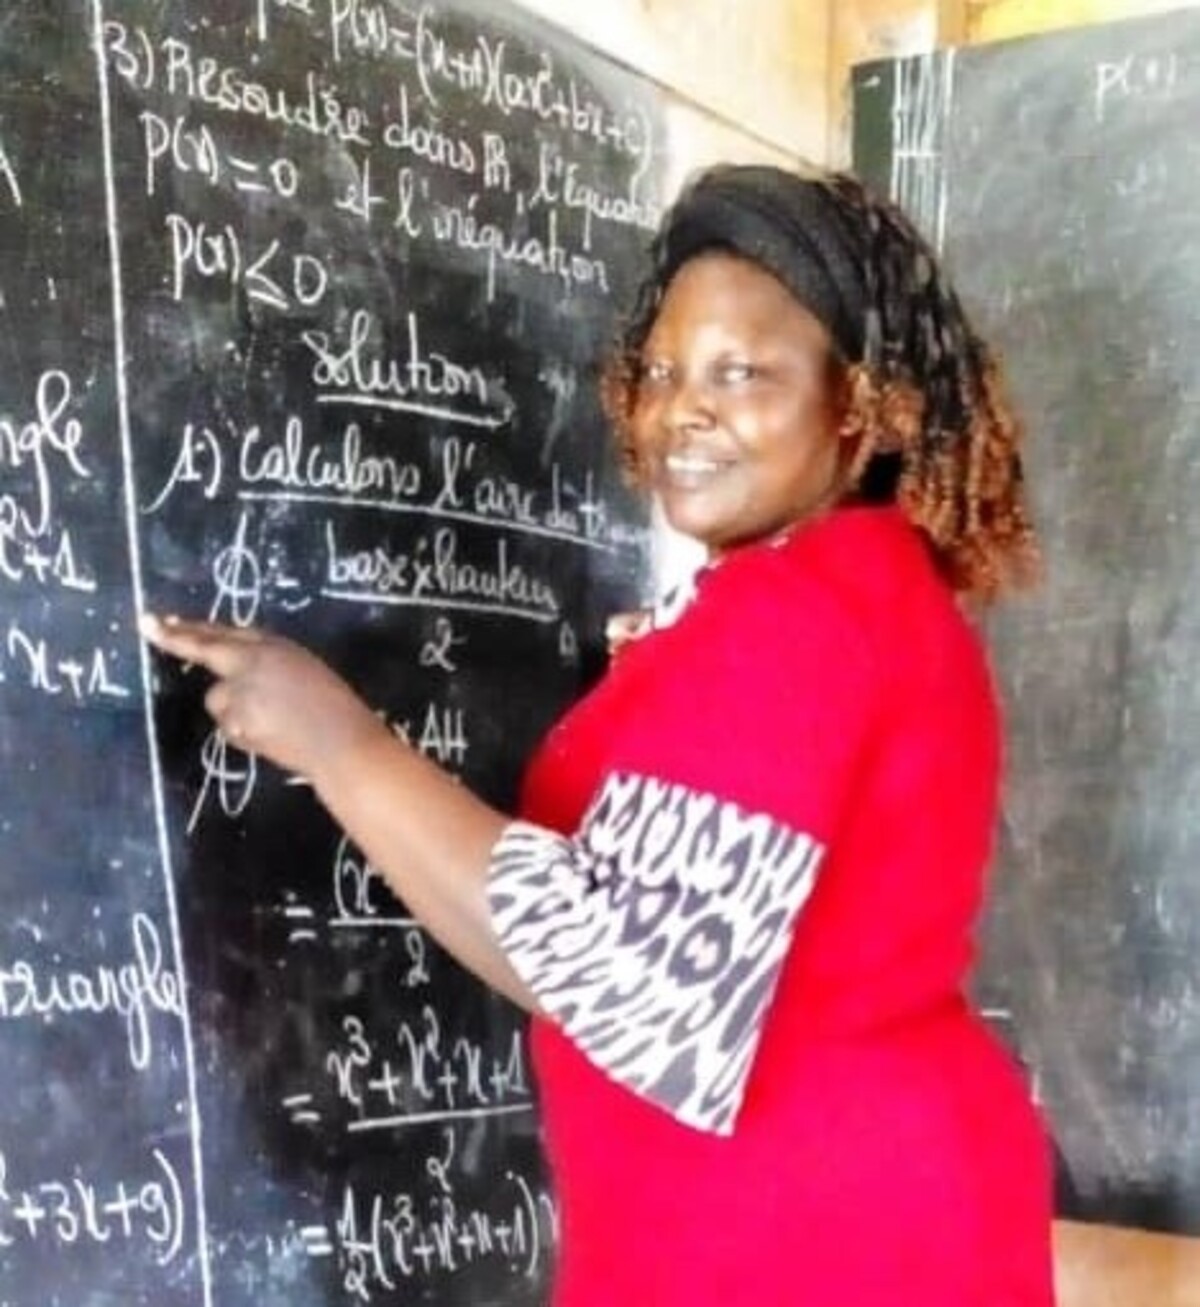 P(x)=(x+1)(ax²+bx+c)
3) Résoudre dans ℝ, l'équation
P(x)=0 et l'inéquation
P(x)≤0
Solution
1) Calculons l'aire du
A = base×hauteur
2
×AH
A =
= (x
2
= x³+x²+x+1
2
= 1/2(x³+x²+x+1)
ngle
x²+1
x+1
triangle
²+3x+9)
P(x)